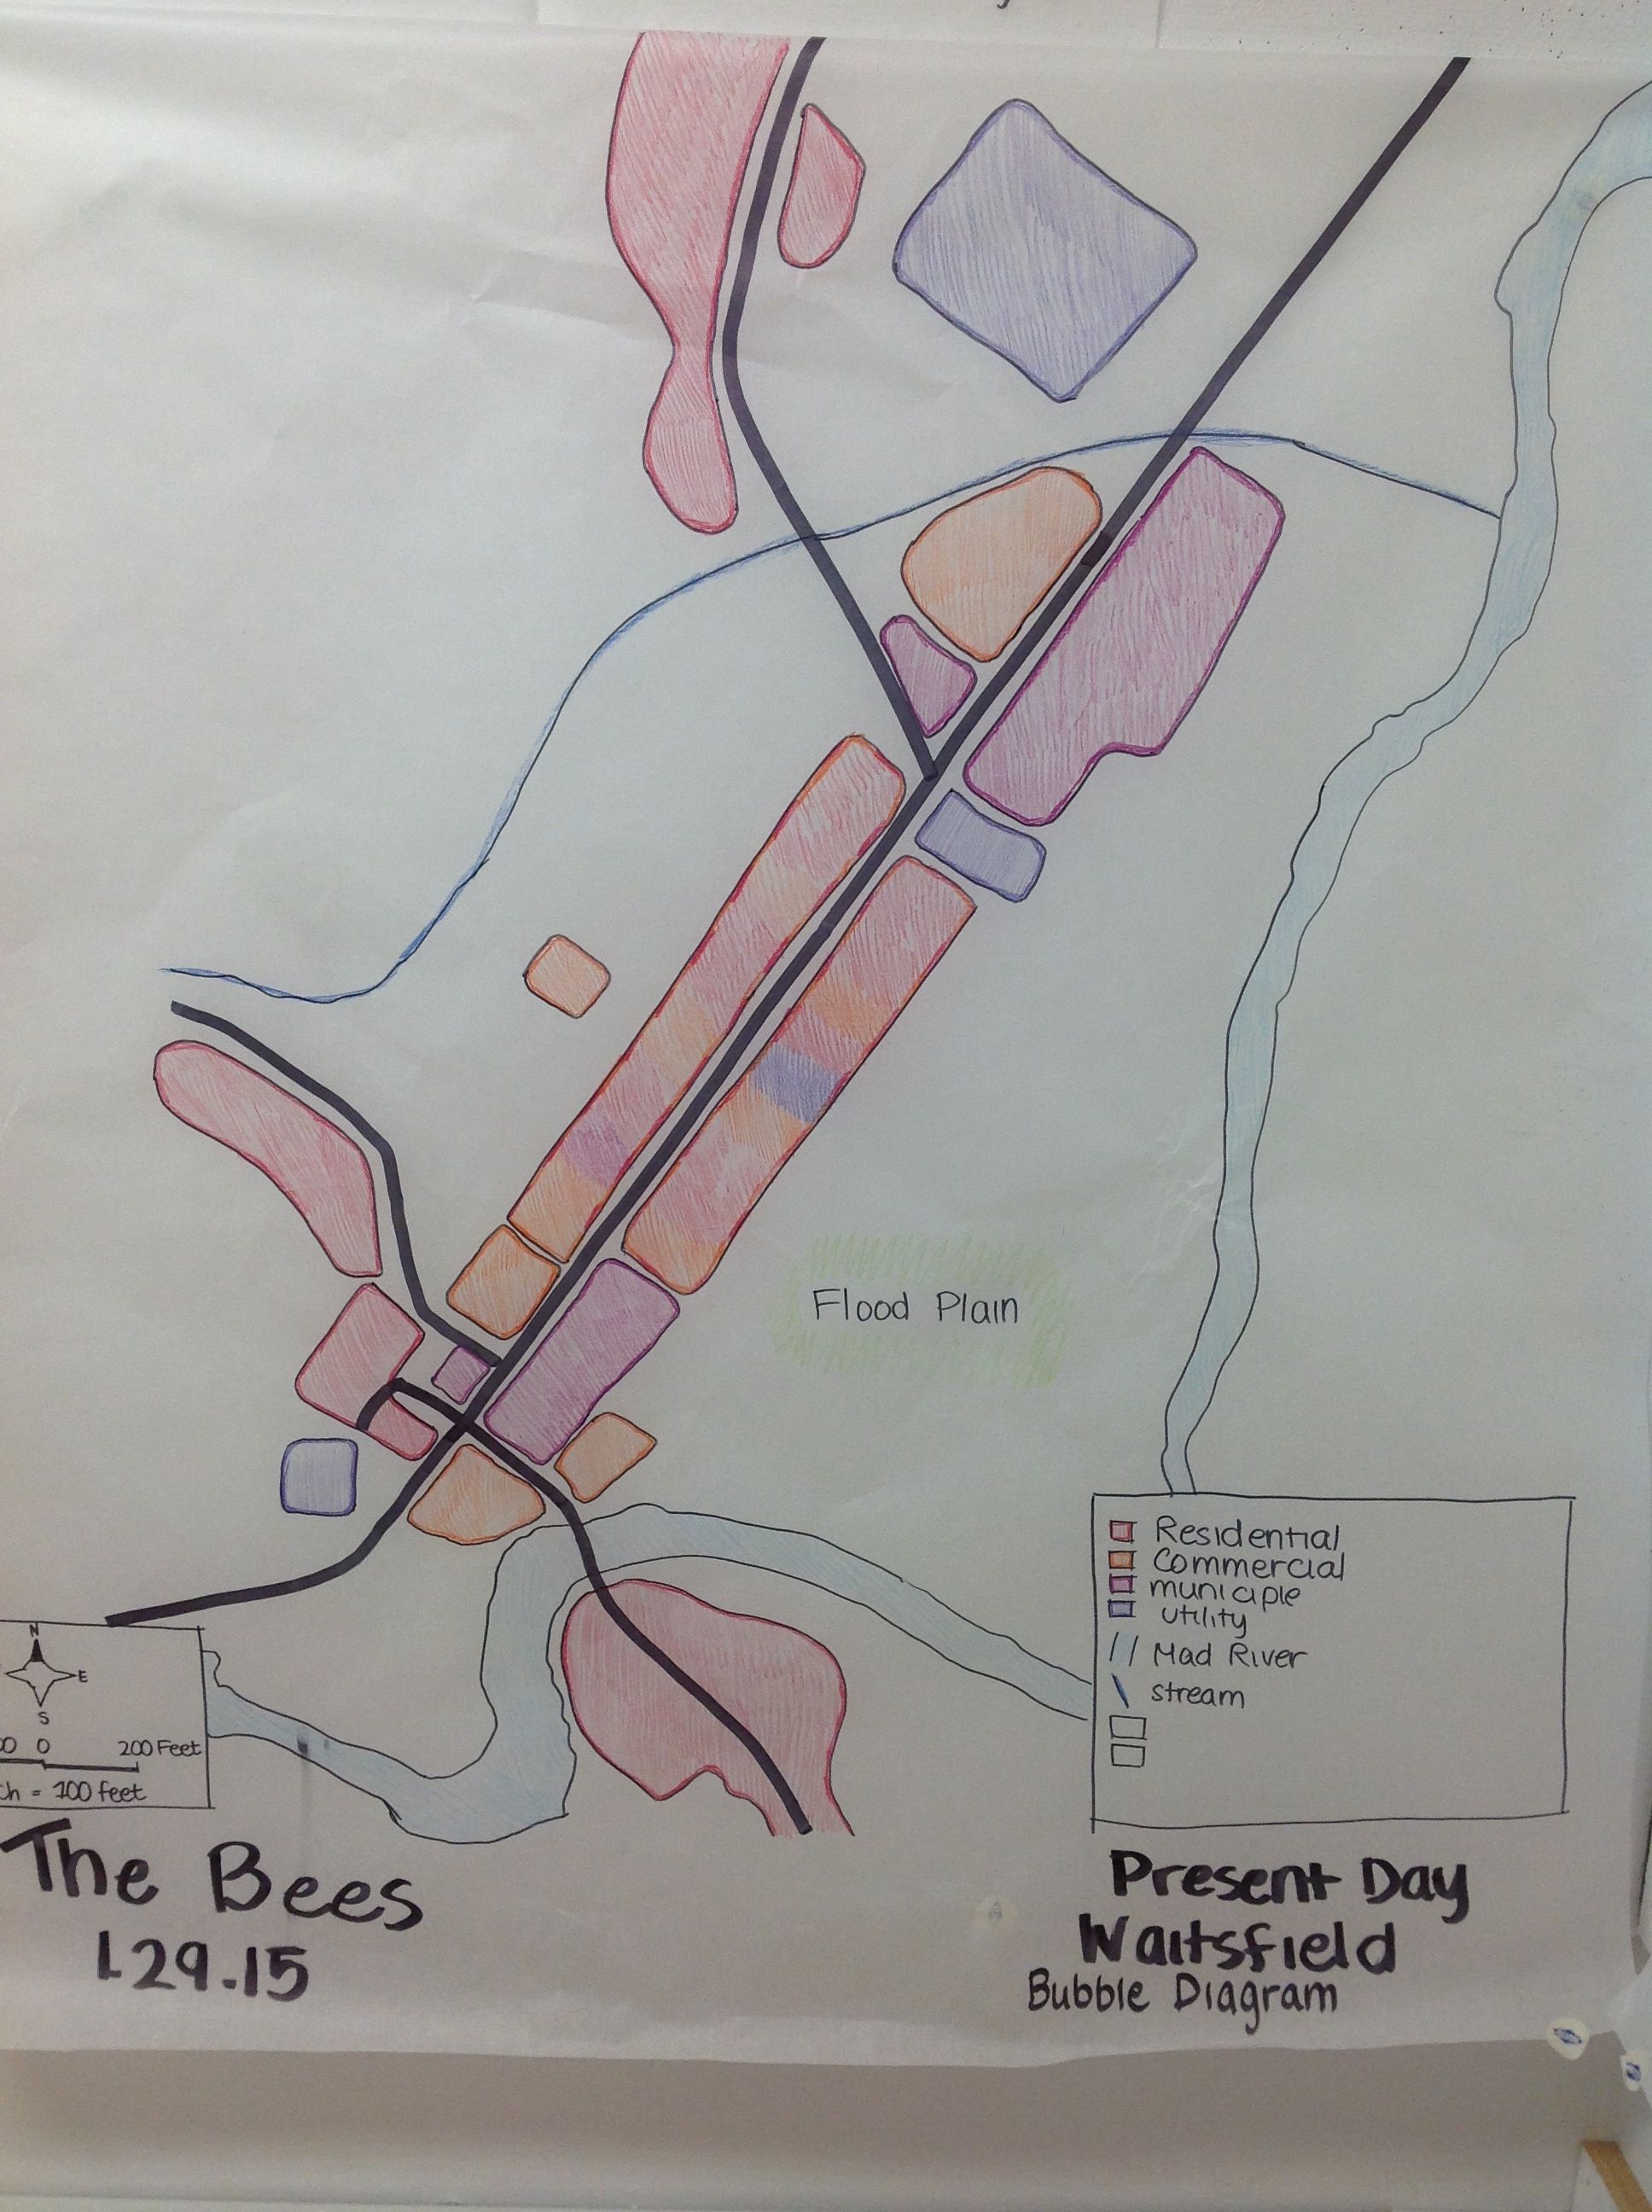 Flood Plain
Residential
Commercial
municiple
utility
Mad River
stream
N
E
S
0
200 Feet
= 100 feet
The Bees
1.29.15
Present Day
Waitsfield
Bubble Diagram